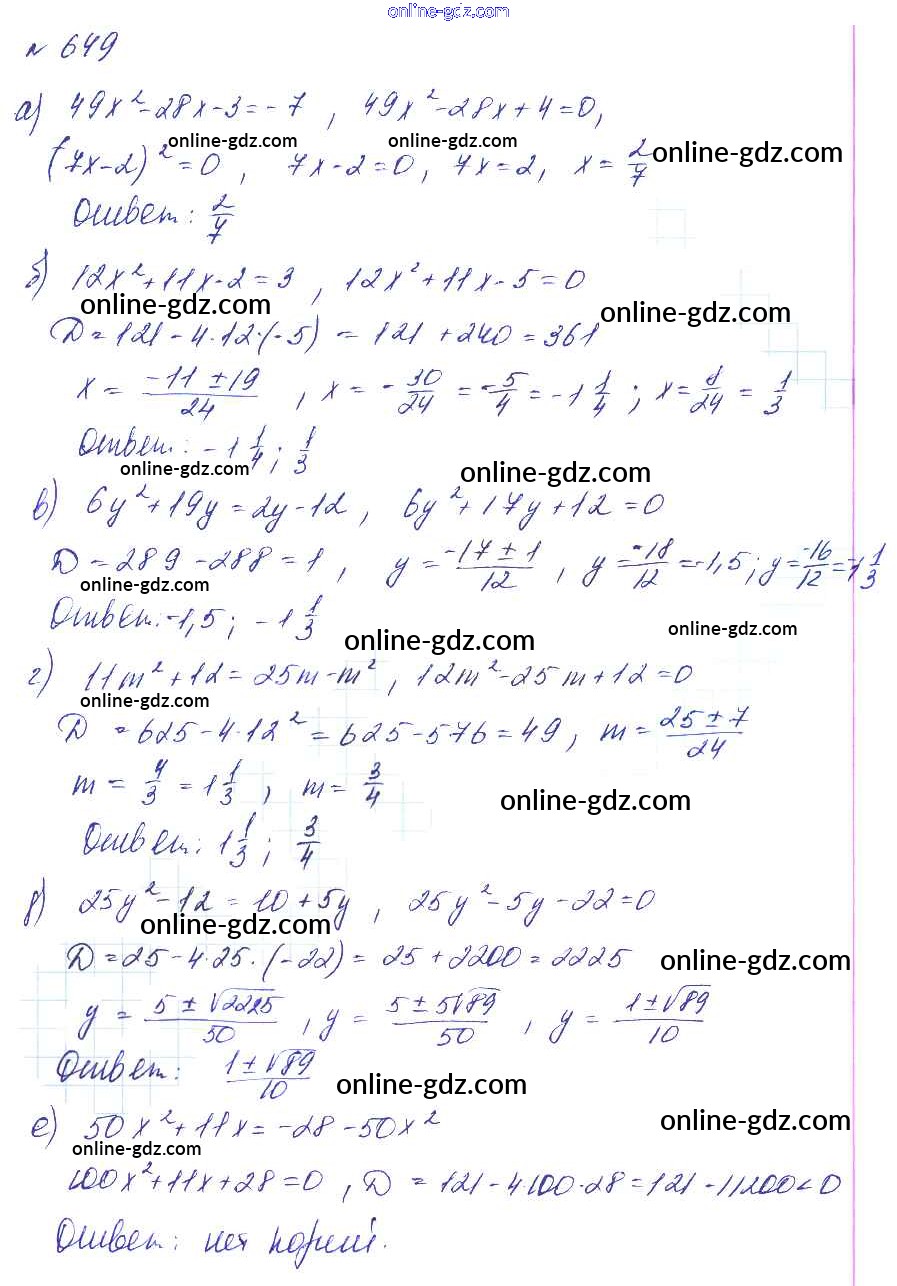 online-gdz.com
№ 649
а) 49x² - 28x - 3 = -7 , 49x² - 28x + 4 = 0,
online-gdz.com online-gdz.com online-gdz.com
(7x-2)² = 0 , 7x - 2 = 0, 7x = 2, x = 2/7
Ответ: 2/7
б) 12x² + 11x - 2 = 3 , 12x² + 11x - 5 = 0
online-gdz.com online-gdz.com
D = 121 - 4·12·(-5) = 121 + 240 = 361
x = (-11 ± 19)/24 , x = -30/24 = -5/4 = -1 1/4 ; x = 8/24 = 1/3
Ответ: -1 1/4 ; 1/3
online-gdz.com online-gdz.com
в) 6y² + 19y = 2y - 12 , 6y² + 17y + 12 = 0
D = 289 - 288 = 1 , y = (-17 ± 1)/12 , y = -18/12 = -1,5 ; y = -16/12 = -1 1/3
online-gdz.com
Ответ: -1,5 ; -1 1/3
online-gdz.com online-gdz.com
г) 11m² + 12 = 25m - m² , 12m² - 25m + 12 = 0
online-gdz.com
D = 625 - 4·12² = 625 - 576 = 49 , m = (25 ± 7)/24
m = 4/3 = 1 1/3 , m = 3/4
online-gdz.com
Ответ: 1 1/3 ; 3/4
д) 25y² - 12 = 10 + 5y , 25y² - 5y - 22 = 0
online-gdz.com
D = 25 - 4·25·(-22) = 25 + 2200 = 2225
online-gdz.com
y = (5 ± √2225)/50 , y = (5 ± 5√89)/50 , y = (1 ± √89)/10
Ответ: (1 ± √89)/10
online-gdz.com
е) 50x² + 11x = -28 - 50x²
online-gdz.com
online-gdz.com
100x² + 11x + 28 = 0 , D = 121 - 4·100·28 = 121 - 11200 < 0
Ответ: нет корней.